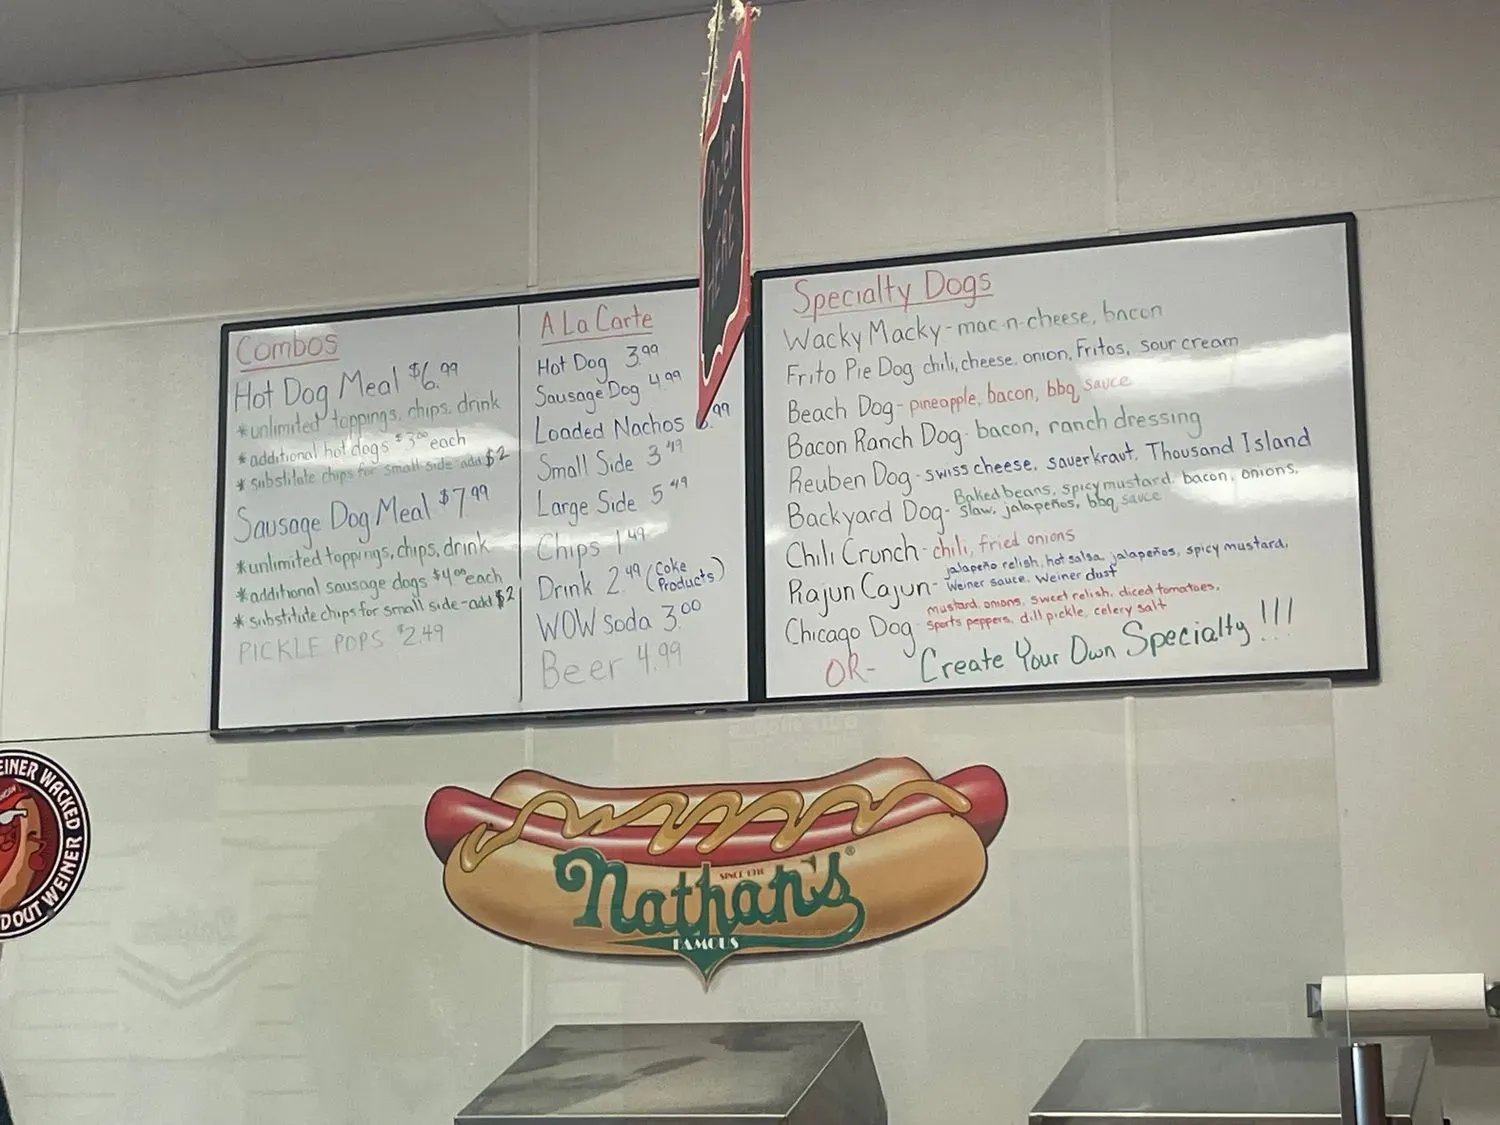 Order
HERE
Combos
Hot Dog Meal $6.99
*unlimited toppings, chips, drink
*additional hot dogs $3.00 each
*substitute chips for small side add $2
Sausage Dog Meal $7.99
*unlimited toppings, chips, drink
*additional sausage dogs $4.00 each
*substitute chips for small side-add $2
PICKLE POPS $2.49
A La Carte
Hot Dog 3.99
Sausage Dog 4.99
Loaded Nachos .99
Small Side 3.49
Large Side 5.49
Chips 1.49
Drink 2.49 (Coke Products)
WOW Soda 3.00
Beer 4.99
Specialty Dogs
Wacky Macky-mac-n-cheese, bacon
Frito Pie Dog chili, cheese, onion, Fritos, sour cream
Beach Dog-pineapple, bacon, bbq sauce
Bacon Ranch Dog-bacon, ranch dressing
Reuben Dog-swiss cheese, sauerkraut, Thousand Island
Backyard Dog-Baked beans, spicy mustard, bacon, onions,
slaw, jalapeños, bbq sauce
Chili Crunch-chili, fried onions
Rajun Cajun-jalapeño relish, hot salsa, jalapeños, spicy mustard,
Weiner sauce, Weiner dust
Chicago Dog-mustard, onions, sweet relish, diced tomatoes,
sports peppers, dill pickle, celery salt
OR- Create Your Own Specialty!!!
EINER WACKED
OUT WEINER
SINCE 1916
Nathan's®
FAMOUS